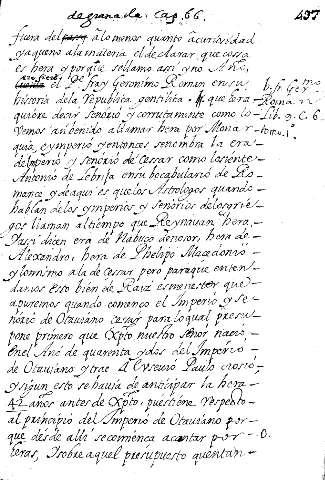 de granada. Cap. 66. 437
fuera del passo alomenos quanto a curiosidad
y aqueno ala materia el declarar que cossa
es hera y porque se llamo assi y no Año,
el Pe fray Geronimo Roman en su
historia dela Republica gentilica. que hera
quiere decir señorio y corrutamente como lo
vemos an venido a llamar hera por Monar
quia, e ymperio y entonces señombra la era
de Imperio y señorio de Cessar como lo siente
Antonio de Lebrija en su bocabulario de Ro
mance y de aqui es que los Astrologos quando
hablan delos ymperios y señorios delos grie
gos llaman al tiempo que Reynavan hera
y assi dicen era de Nabuco denosor, hera de
Alexandro, hera de Phelipo Macedonio
y lo mismo ala de Cessar, pero para que enten
damos esto bien de Raiz es menester que
apuremos quando començo el Imperio y se
ñorio de Otaviano cesar para lo qual presu
pone primero que Xpto nuestro señor nacio
en el Año de quarenta y dos del Imperio
de Otaviano y trae A Eussevio Paulo orosio
y sigun esto se havia de anticipar la hera
42 años antes de Xpto, puestiene respecto
al principio del Imperio de Otaviano por
que desde alli se comença a contar por
heras, y sobre aquel presupuesto quentan
b. fr Germo
Roman
Lib. 9. C. 6
tomo. 1